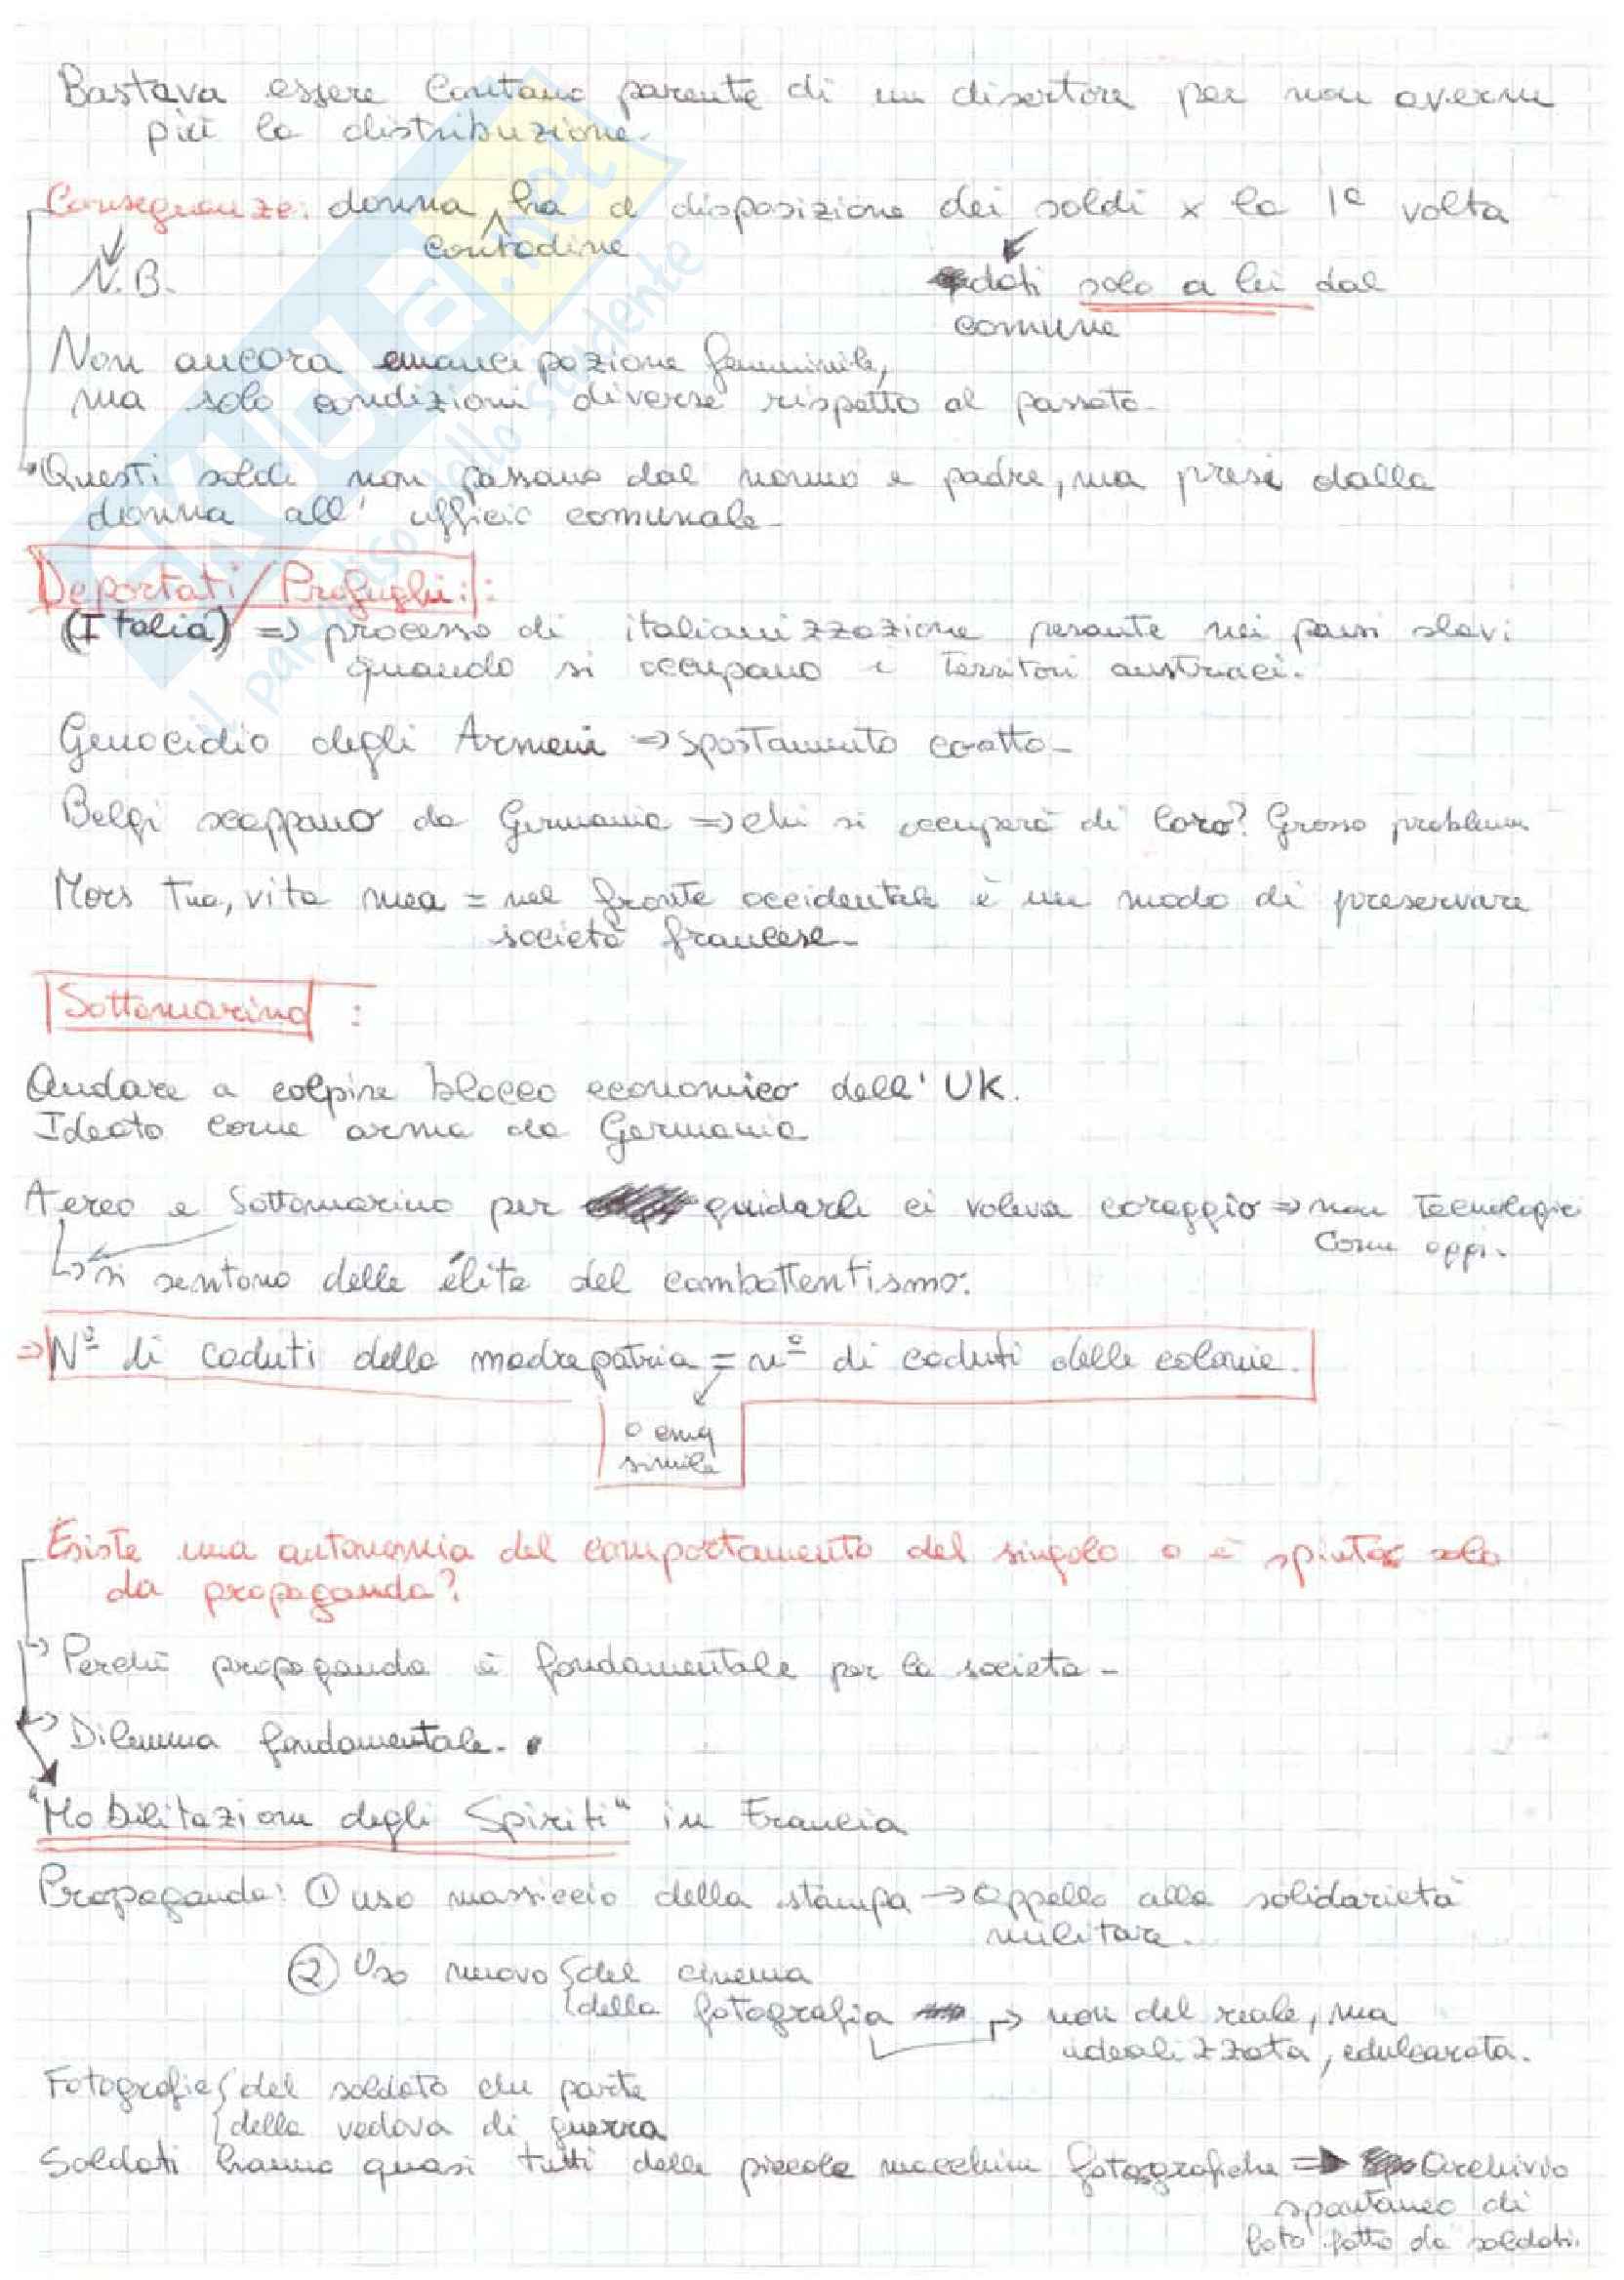 Bastava essere lontano parente di un disertore per non averne
più la distribuzione.
Conseguenze: donna contadina ha a disposizione dei soldi x la 1ª volta
N.B.
dati solo a lei dal
comune
Non ancora emancipazione femminile,
ma solo condizioni diverse rispetto al passato.
Questi soldi non passano dal nonno e padre, ma presi dalla
donna all'ufficio comunale.
Deportati/Profughi:
(Italia) => processo di italianizzazione pesante nei paesi slavi
quando si occupano i territori austriaci.
Genocidio degli Armeni => spostamento coatto.
Belgi scappano da Germania => chi si occuperà di loro? Grosso problema
Mors tua, vita mea = nel fronte occidentale è un modo di preservare
società francese.
Sottomarino :
Andare a colpire blocco economico dell'UK.
Ideato come arma da Germania
Aereo e Sottomarino per guidarli ci voleva coraggio => non tecnologici
come oggi.
↳ si sentono delle élite del combattentismo.
=> Nº di caduti della madrepatria = nº di caduti delle colonie.
o cmq
simile
Esiste una autonomia del comportamento del singolo o è spinto solo
da propaganda?
-> Perchè propaganda è fondamentale per la società -
-> Dilemma fondamentale.
"Mobilitazione degli Spiriti" in Francia
Propaganda: ① uso massiccio della stampa -> appello alla solidarietà
militare.
② Uso nuovo { del cinema
{ della fotografia -> non del reale, ma
idealizzata, edulcorata.
Fotografie { del soldato che parte
{ della vedova di guerra
Soldati hanno quasi tutti delle piccole macchine fotografiche => Archivio
spontaneo di
foto fatto da soldati.
SKUOLA.net
il paradiso dello studente